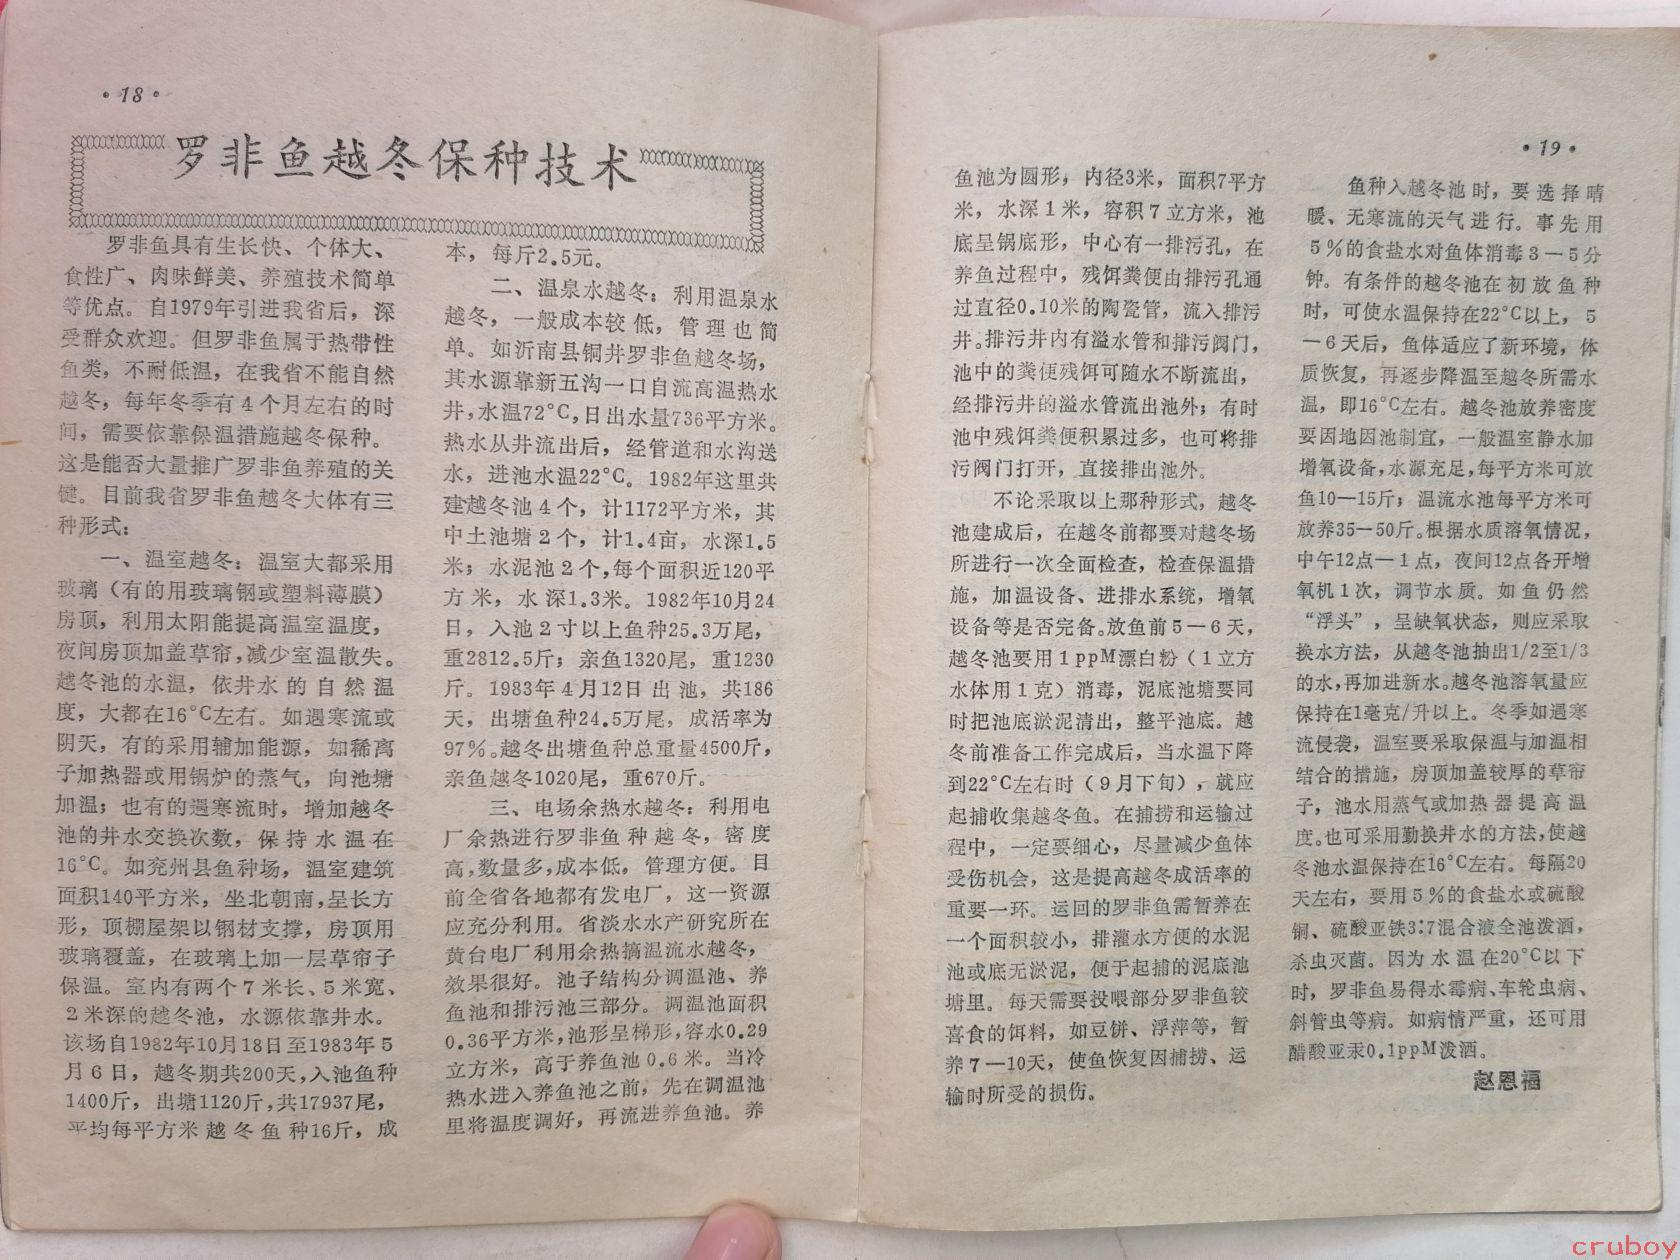 ·18·
罗非鱼越冬保种技术
罗非鱼具有生长快、个体大、
食性广、肉味鲜美、养殖技术简单
等优点。自1979年引进我省后，深
受群众欢迎。但罗非鱼属于热带性
鱼类，不耐低温，在我省不能自然
越冬，每年冬季有4个月左右的时
间，需要依靠保温措施越冬保种。
这是能否大量推广罗非鱼养殖的关
键。目前我省罗非鱼越冬大体有三
种形式：
一、温室越冬：温室大都采用
玻璃（有的用玻璃钢或塑料薄膜）
房顶，利用太阳能提高温室温度，
夜间房顶加盖草帘，减少室温散失。
越冬池的水温，依井水的自然温
度，大都在16°C左右。如遇寒流或
阴天，有的采用辅加能源，如稀离
子加热器或用锅炉的蒸气，向池塘
加温；也有的遇寒流时，增加越冬
池的井水交换次数，保持水温在
16°C。如兖州县鱼种场，温室建筑
面积140平方米，坐北朝南，呈长方
形，顶棚屋架以钢材支撑，房顶用
玻璃覆盖，在玻璃上加一层草帘子
保温。室内有两个7米长、5米宽、
2米深的越冬池，水源依靠井水。
该场自1982年10月18日至1983年5
月6日，越冬期共200天，入池鱼种
1400斤，出塘1120斤，共17937尾，
平均每平方米越冬鱼种16斤，成
本，每斤2.5元。
二、温泉水越冬：利用温泉水
越冬，一般成本较低，管理也简
单。如沂南县铜井罗非鱼越冬场，
其水源靠新五沟一口自流高温热水
井，水温72°C，日出水量736平方米。
热水从井流出后，经管道和水沟送
水，进池水温22°C。1982年这里共
建越冬池4个，计1172平方米，其
中土池塘2个，计1.4亩，水深1.5
米；水泥池2个，每个面积近120平
方米，水深1.3米。1982年10月24
日，入池2寸以上鱼种25.3万尾，
重2812.5斤；亲鱼1320尾，重1230
斤。1983年4月12日出池，共186
天，出塘鱼种24.5万尾，成活率为
97%。越冬出塘鱼种总重量4500斤，
亲鱼越冬1020尾，重670斤。
三、电场余热水越冬：利用电
厂余热进行罗非鱼种越冬，密度
高，数量多，成本低，管理方便。目
前全省各地都有发电厂，这一资源
应充分利用。省淡水水产研究所在
黄台电厂利用余热搞温流水越冬，
效果很好。池子结构分调温池、养
鱼池和排污池三部分。调温池面积
0.36平方米，池形呈梯形，容水0.29
立方米，高于养鱼池0.6米。当冷
热水进入养鱼池之前，先在调温池
里将温度调好，再流进养鱼池。养
·19·
鱼池为圆形，内径3米，面积7平方
米，水深1米，容积7立方米，池
底呈锅底形，中心有一排污孔，在
养鱼过程中，残饵粪便由排污孔通
过直径0.10米的陶瓷管，流入排污
井。排污井内有溢水管和排污阀门，
池中的粪便残饵可随水不断流出，
经排污井的溢水管流出池外；有时
池中残饵粪便积累过多，也可将排
污阀门打开，直接排出池外。
不论采取以上那种形式，越冬
池建成后，在越冬前都要对越冬场
所进行一次全面检查，检查保温措
施，加温设备、进排水系统，增氧
设备等是否完备。放鱼前5—6天，
越冬池要用1ppM漂白粉（1立方
水体用1克）消毒，泥底池塘要同
时把池底淤泥清出，整平池底。越
冬前准备工作完成后，当水温下降
到22°C左右时（9月下旬），就应
起捕收集越冬鱼。在捕捞和运输过
程中，一定要细心，尽量减少鱼体
受伤机会，这是提高越冬成活率的
重要一环。运回的罗非鱼需暂养在
一个面积较小，排灌水方便的水泥
池或底无淤泥，便于起捕的泥底池
塘里。每天需要投喂部分罗非鱼较
喜食的饵料，如豆饼、浮萍等，暂
养7—10天，使鱼恢复因捕捞、运
输时所受的损伤。
鱼种入越冬池时，要选择晴
暖、无寒流的天气进行。事先用
5%的食盐水对鱼体消毒3—5分
钟。有条件的越冬池在初放鱼种
时，可使水温保持在22°C以上，5
—6天后，鱼体适应了新环境，体
质恢复，再逐步降温至越冬所需水
温，即16°C左右。越冬池放养密度
要因地因池制宜，一般温室静水加
增氧设备，水源充足，每平方米可放
鱼10—15斤；温流水池每平方米可
放养35—50斤。根据水质溶氧情况，
中午12点—1点，夜间12点各开增
氧机1次，调节水质。如鱼仍然
“浮头”，呈缺氧状态，则应采取
换水方法，从越冬池抽出1/2至1/3
的水，再加进新水。越冬池溶氧量应
保持在1毫克/升以上。冬季如遇寒
流侵袭，温室要采取保温与加温相
结合的措施，房顶加盖较厚的草帘
子，池水用蒸气或加热器提高温
度。也可采用勤换井水的方法，使越
冬池水温保持在16°C左右。每隔20
天左右，要用5%的食盐水或硫酸
铜、硫酸亚铁3:7混合液全池泼洒，
杀虫灭菌。因为水温在20°C以下
时，罗非鱼易得水霉病、车轮虫病、
斜管虫等病。如病情严重，还可用
醋酸亚汞0.1ppM泼洒。
赵恩福
cruboy